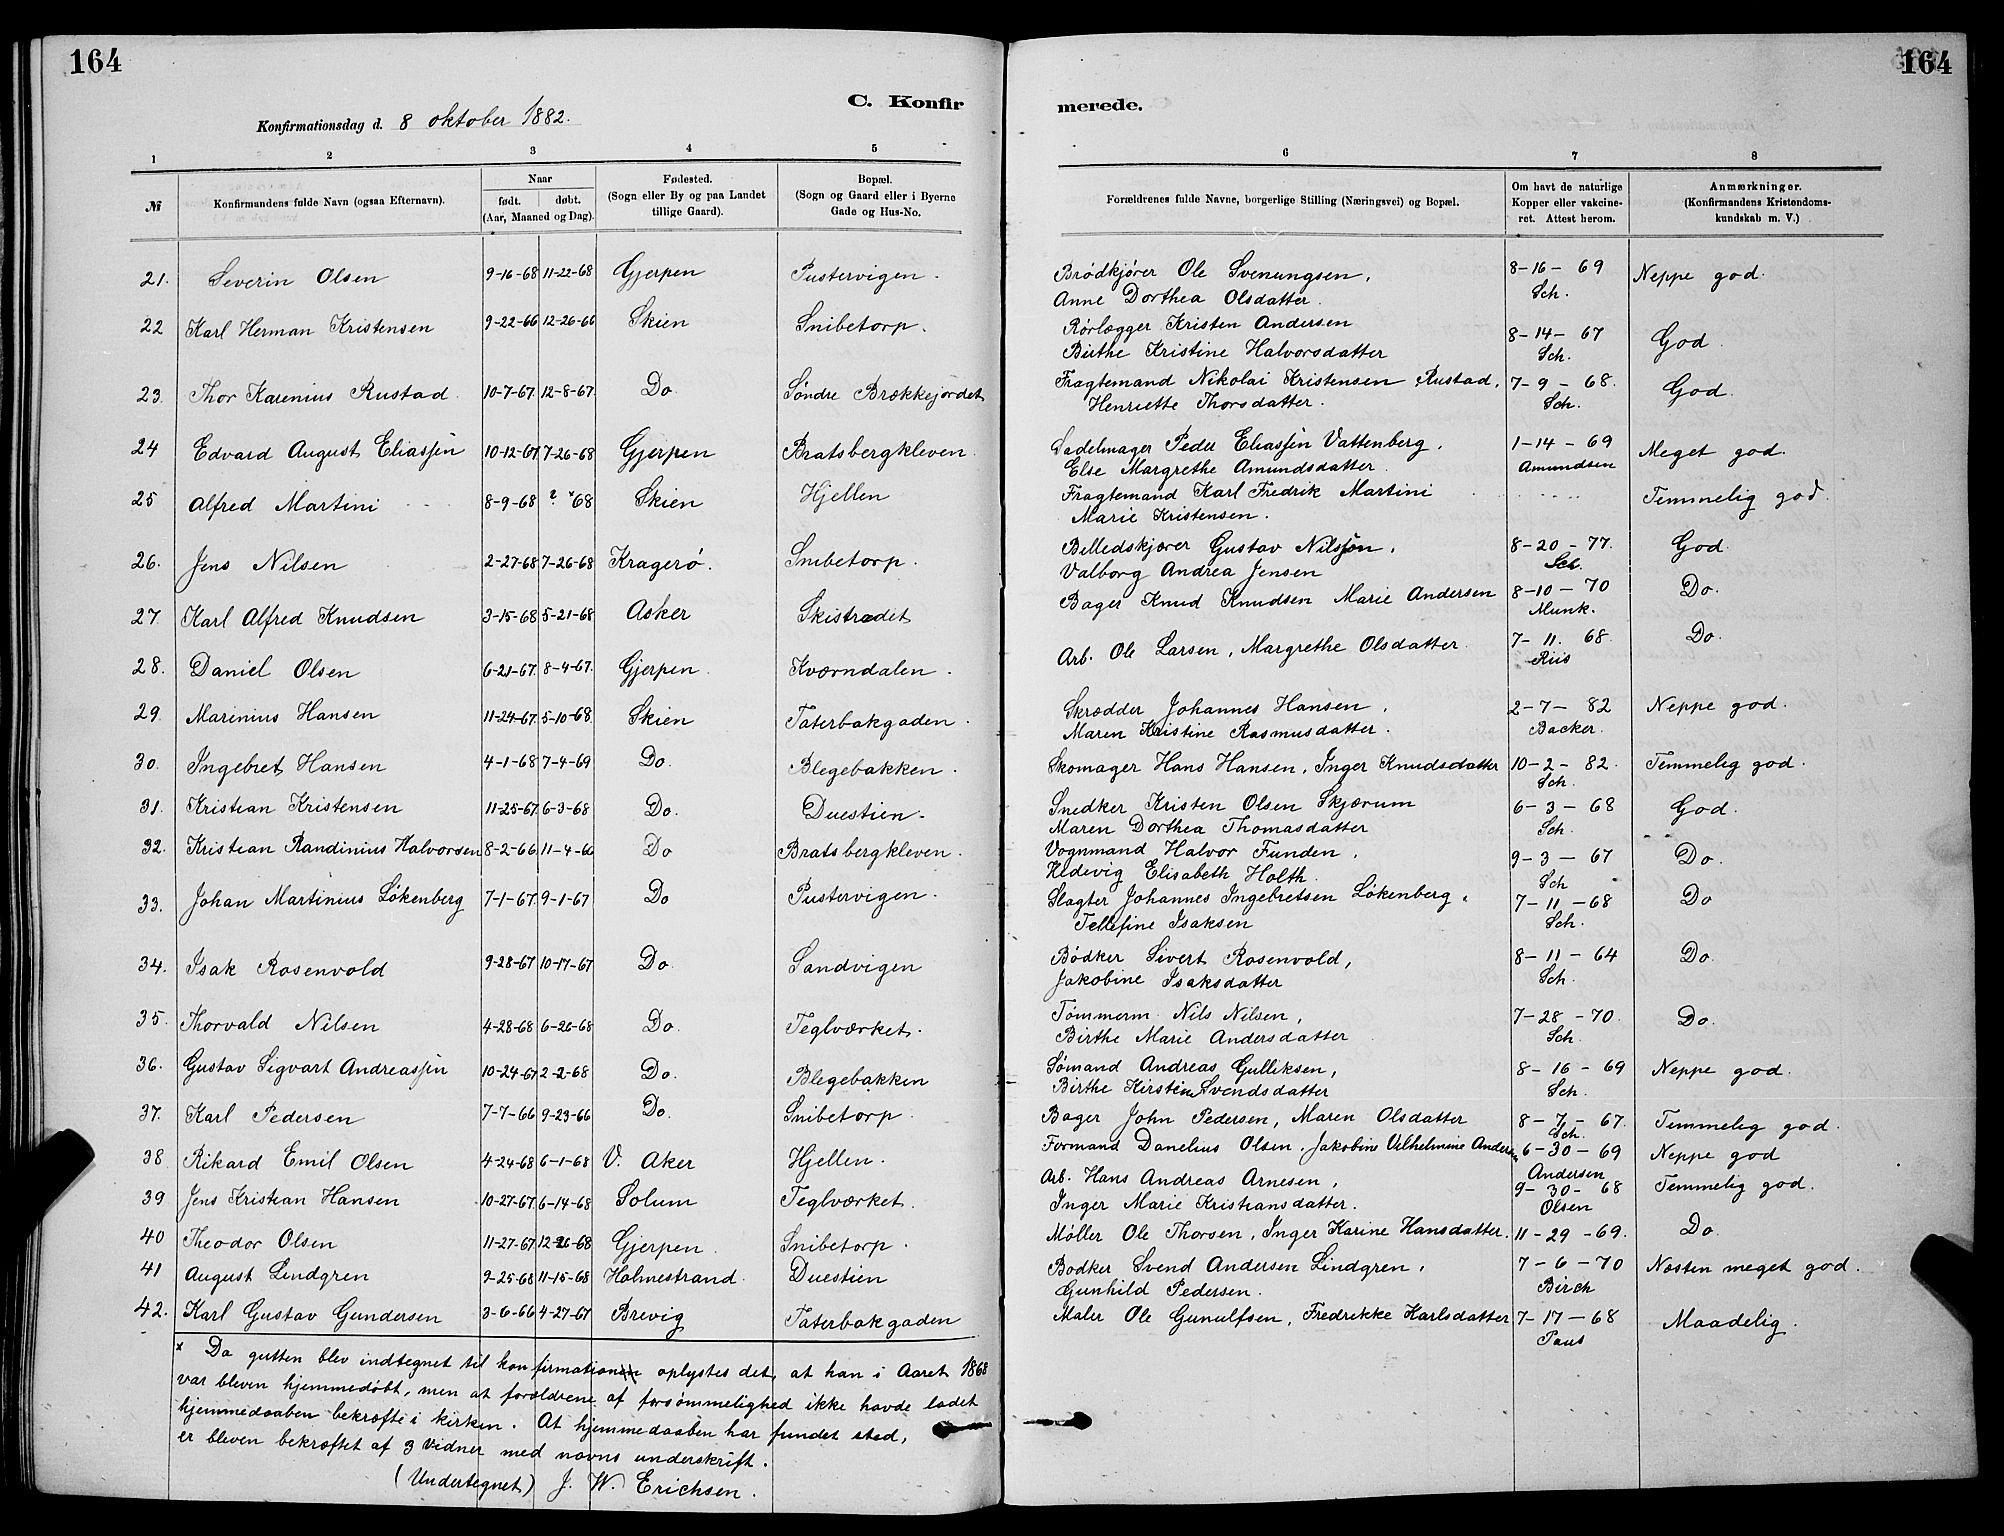 164
C. Konfir
Konfirmationsdag d. 8 oktober 1882.
1 2 3 4 5
№ Konfirmandens fulde Navn (ogsaa Efternavn). Naar født. døbt. (Aar, Maaned og Dag). Fødested. (Sogn eller By og paa Landet tillige Gaard). Bopæl. (Sogn og Gaard eller i Byerne Gade og Hus-No.
21. Severin Olsen 9-16-68 11-22-68 Gjerpen Pustervigen.
22 Karl Herman Kristensen 9-22-66 12-26-66 Skien Snibetorp.
23. Thor Karenius Rustad. 10-7-67. 12-8-67. Do. Søndre Brækkejordet
24 Edvard August Eliassen 10-12-67 7-26-68 Gjerpen Bratsbergkleven.
25 Alfred Martini 8-9-68 ? × 68 Skien Hjellen
26. Jens Nilsen 2-27-68 7-26-68 Kragerø. Snibetorp.
27. Karl Alfred Knudsen 3-15-68 5-21-68 Asker Skistrædet
28. Daniel Olsen 6-21-67. 8-4-67. Gjerpen. Kværndalen.
29. Marinius Hansen 11-24-67. 5-10-68. Skien Taterbakgaden.
30. Ingebret Hansen 4-1-68 7-4-69 Do. Blegebakken.
31. Kristian Kristensen 11-25-67. 6-3-68 Do. Duestien.
32. Kristian Randinius Halvorsen 8-2-66 11-4-66 Do Bratsbergkleven.
33. Johan Martinius Løkenberg 7-1-67. 9-1-67 Do Pustervigen.
34. Isak Rosenvold 9-28-67 10-17-67 Do. Sandvigen
35. Thorvald Nilsen 4-28-68 6-26-68 Do. Teglværket.
36. Gustav Sigvart Andreassen 10-24-67 2-2-68 Do. Blegebakken
37. Karl Pedersen 7-7-66 9-23-66 Do. Snibetorp.
38. Rikard Emil Olsen 4-24-68 6-1-68 V. Aker Hjellen.
39 Jens Kristian Hansen 10-27-67. 6-14-68 Solum Teglværket.
40 Theodor Olsen 11-27-67. 12-26-68 Gjerpen. Snibetorp.
41 August Lindgren 9-25-68 11-15-68 Holmestrand. Duestien
42. Karl Gustav Gundersen 3-6-66 4-27-67 Brevig Taterbakgaden
× Da gutten blev indtegnet til konfirmationen oplystes det, at han i Aaret 1868
var bleven hjemmedøbt, men at forældrene af forsømmelighed ikke havde ladet
hjemmedaaben bekræfte i kirken. At hjemmedaaben har fundet sted,
er bleven bekræftet af 3 vidner med navns underskrift.
(Undertegnet) J. W. Erichsen.
164
merede.
6 7 8
Forældrenes fulde Navne, borgerlige Stilling (Næringsvei) og Bopæl. Om havt de naturlige Kopper eller vakcineret. Attest herom. Anmærkninger. (Konfirmandens Kristendomskundskab m. V.)
Brødkjører Ole Svenungsen, 8-16-69 Neppe god.
Anne Dorthea Olsdatter. Sch.
Rørlægger Kristen Andersen 8-14-67 God.
Birthe Kristine Halvorsdatter Sch.
Fragtemand Nikolai Kristensen Rustad, 7-9-68. God.
Henriette Thorsdatter. Sch.
Sadelmager Peder Eliassen Vattenberg, 1-14-69 Meget god.
Else Margrethe Amundsdatter. Amundsen
Fragtemand Karl Fredrik Martini Temmelig god.
Marie Kristensen.
Billedskjærer Gustav Nilssøn, 8-20-77. God.
Valborg Andrea Jensen Sch.
Bager Knud Knudsen Marie Andersen 8-10-70 Do.
Munk.
Arb. Ole Larsen, Margrethe Olsdatter. 7-11. 68. Do.
Riis
Skrædder Johannes Hansen, 2-7-82 Neppe god.
Maren Kristine Rasmusdatter. Backer.
Skomager Hans Hansen, Inger Knudsdatter 10-2-82. Temmelig god.
Sch.
Snedker Kristen Olsen Skjærum 6-3-68 God.
Maren Dorthea Thomasdatter Sch.
Vognmand Halvor Funden, 9-3-67 Do.
Hedevig Elisabeth Holth. Sch
Slagter Johannes Ingebretsen Løkenberg, 7-11-68 Do
Tellefine Isaksen Sch.
Bødker Sivert Rosenvold, 8-11-64 Do.
Jakobine Isaksdatter Sch.
Tømmerm. Nils Nilsen, 7-28-70. Do.
Birthe Marie Andersdatter Sch.
Sømand Andreas Gulliksen, 8-16-69 Neppe god.
Birthe Kirstine Svendsdatter Sch.
Bager John Pedersen, Maren Olsdatter 8-7-67. Temmelig god.
Sch.
Formand Danelius Olsen, Jakobine Vilhelmine Andersen 6-30-69 Neppe god
Andersen
Arb. Hans Andreas Arnesen, 9-30-68 Temmelig god.
Inger Marie Kristiansdatter. Olsen
Møller Ole Thorsen, Inger Karine Hansdatter. 11-29-69. Do.
Bødker Svend Andersen Lindgren, 7-6-70 Næsten meget god.
Gunhild Pedersen. Birch
Maler Ole Gunulfsen, Fredrikke Karlsdatter 7-17-68 Maadelig.
Paus